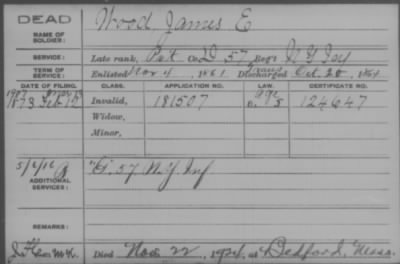 DEAD
NAME OF SOLDIER: Wood, James E
SERVICE: Late rank, Pvt. Co. D 57 Reg't N Y Inf
TERM OF SERVICE: Enlisted Nov 4, 1861 Trans Discharged Oct. 28, 1864
DATE OF FILING. CLASS. APPLICATION NO. LAW. CERTIFICATE NO.
1873 Feb 12 Invalid, 181507 124647
Widow,
Minor,
ADDITIONAL SERVICES: "G" 57 N.Y. Inf
REMARKS:
Died Nov 22, 1924, at Bedford, Mass.